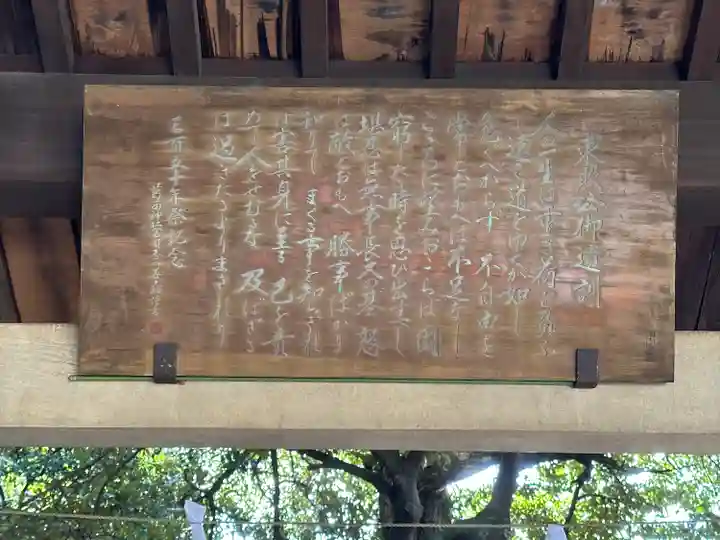 東照公御遺訓
人の一生は重き荷を負ふ
て遠き道をゆくが如し
急ぐべからず 不自由を
常とおもへば不足なし
こころに望みおこらば困
窮したる時を思ひ出すべし
堪忍は無事長久の基 怒
は敵とおもへ 勝事ばかり
知りて まくる事を知らざれ
ば害其身に至る 己を責
めて人をせむるな 及ばざる
は過ぎたるよりまされり
三百五十年祭記念